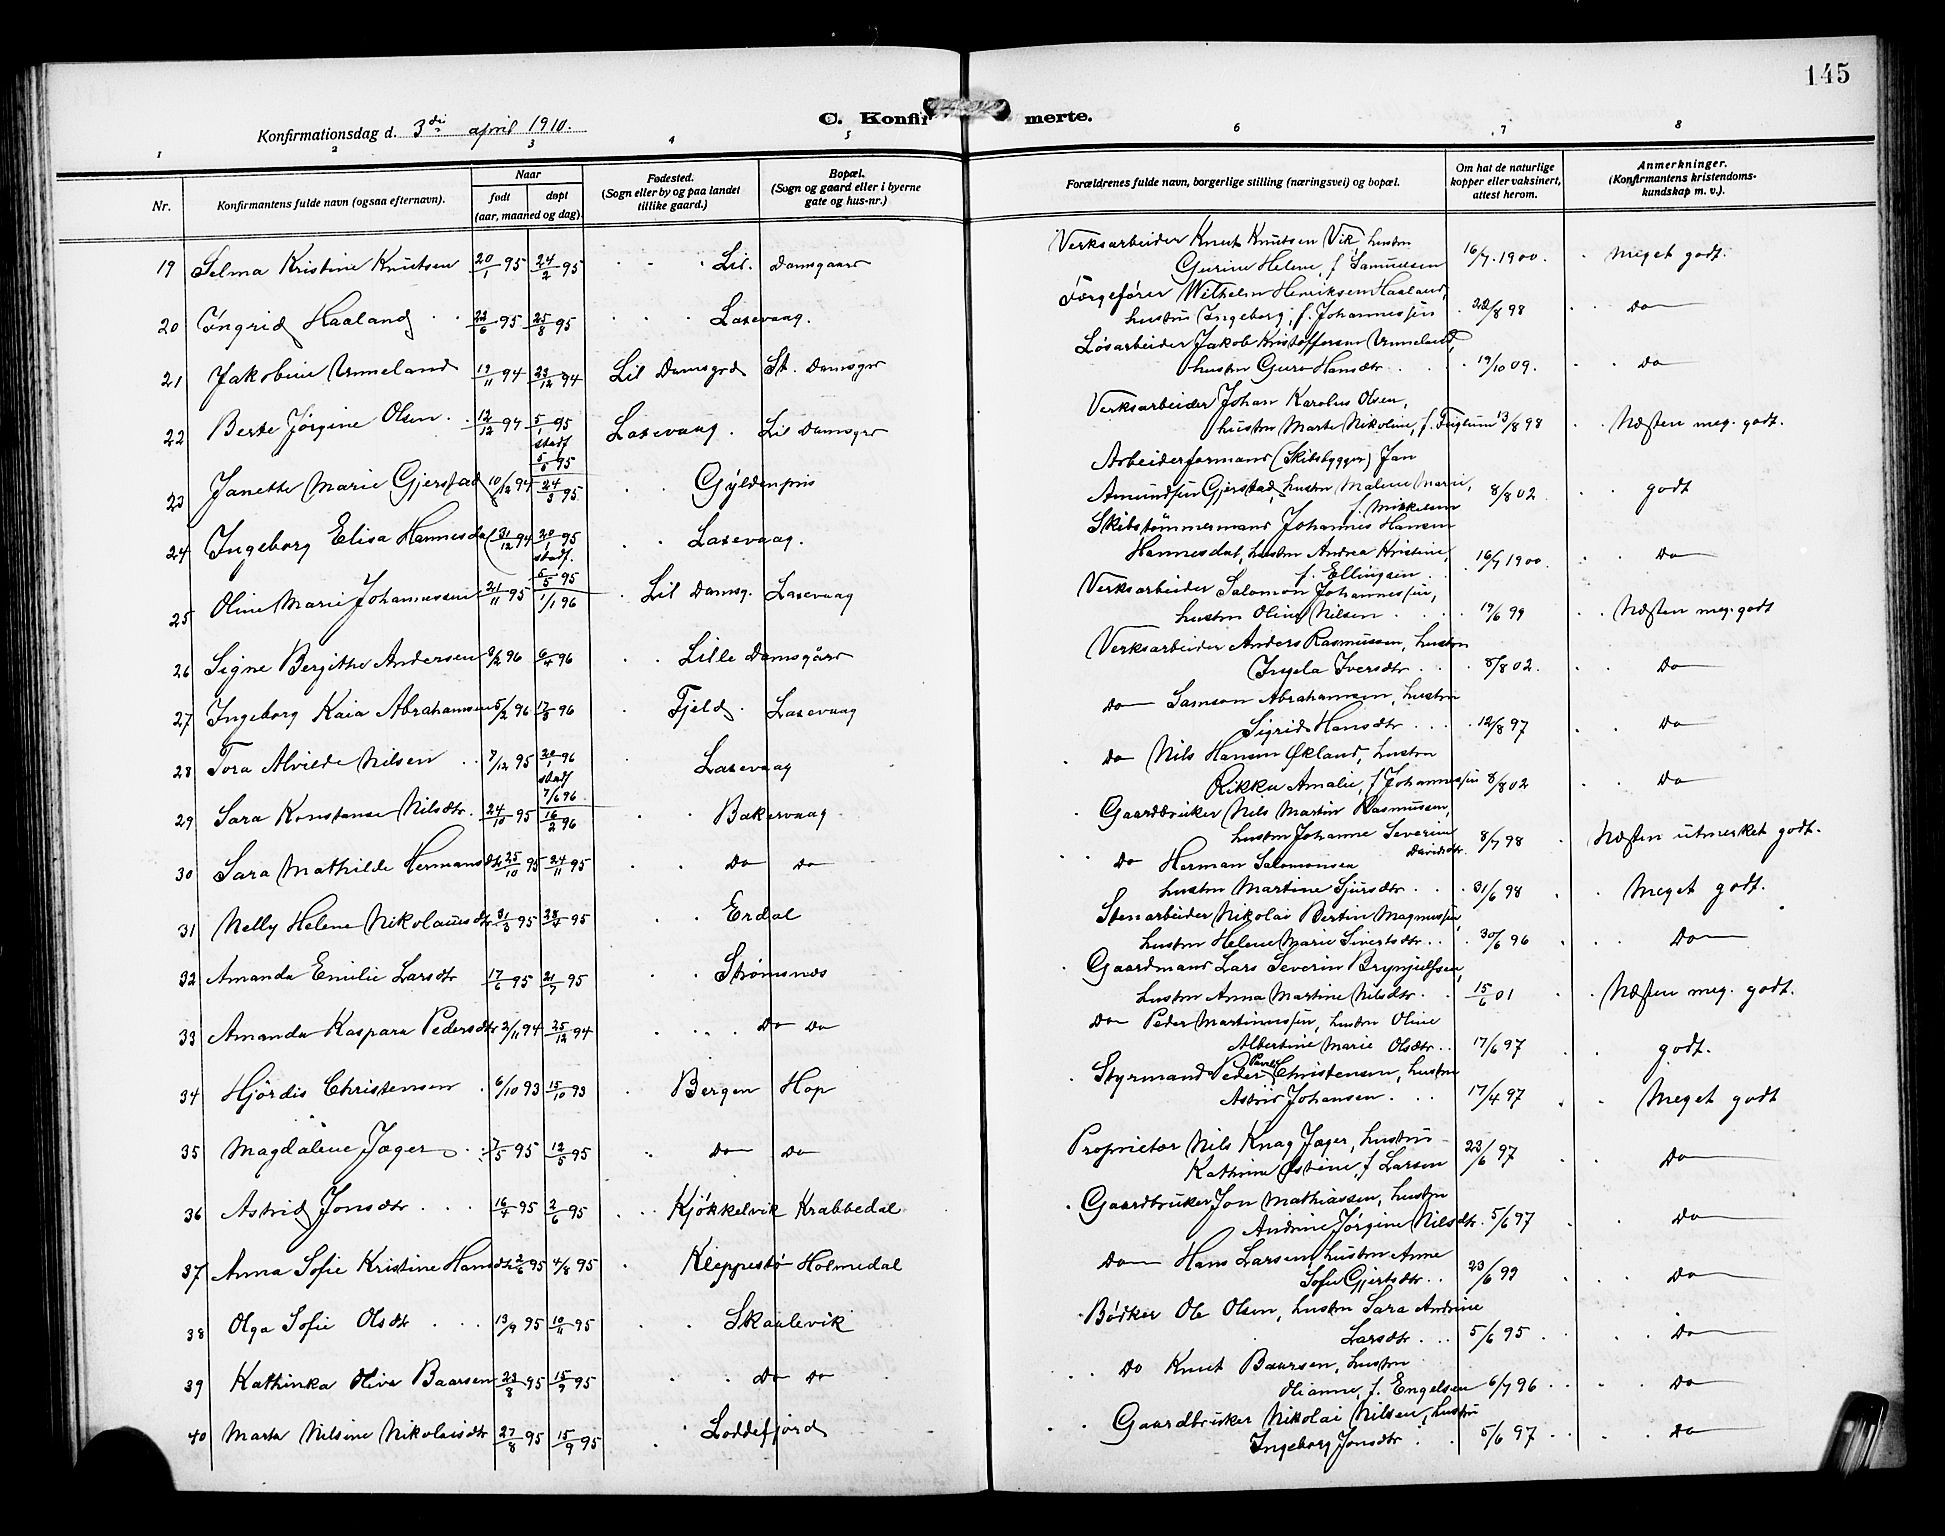 145
Konfirmationsdag d. 3di april 1910.
C. Konfirmerte.
1 2 3 4 5 6 7 8
Nr.
Konfirmantens fulde navn (ogsaa efternavn).
Naar
født
døpt
(aar, maaned og dag).
Fødested.
(Sogn eller by og paa landet
tillike gaard.)
Bopæl.
(Sogn og gaard eller i byerne
gate og hus-nr.)
Forældrenes fulde navn, borgerlige stilling (næringsvei) og bopæl.
Om hat de naturlige
kopper eller vaksinert,
attest herom.
Anmerkninger.
(Konfirmantens kristendoms-
kundskap m. v.).
19 Selma Kristine Knutsen 20/1 95 24/2 95 Lil. Damsgaard Verksarbeider Knut Knutsen Vik, hustru
Gurine Helene, f. Samuelsen 16/7 1900. Meget godt.
20 Ingrid Haaland 22/6 95 25/8 95 Laxevaag. Færgefører Wilhelm Henriksen Haaland,
hustru Ingeborg, f. Johannessen 22/8 98 Do
21 Jakobine Unneland 19/11 94 23/12 94 Lil Damsgrd St. Damsgrd Løsarbeider Jakob Kristoffersen Unneland,
hustru Guro Hansdtr 19/10 09. Do
22 Berte Jørgine Olsen 12/12 94 5/1 95 Laxevaag. Lil Damsgrd Verksarbeider Johan Karolus Olsen,
stadf 5/5 95 hustru Marte Nikoline, f. 13/8 98 Næsten meg. godt.
23 Janette Marie Gjerstad 10/12 94 24/3 95 Gyldenpris Arbeiderformand (Skibsbygger) Jan
Amundsen Gjerstad, hustru Malene Marie,
f. Mikkelsen 8/8 02. godt
24 Ingeborg Elisa Hannesdal 31/12 94 20/1 95 Laxevaag. Skibstømmermand Johannes Hansen
stadf. 5/5 95 Hannesdal, hustru Andrea Kristine,
f. Ellingsen 16/7 1900. Do
25 Oline Marie Johannessen 21/11 95 1/1 96 Lil Damsg. Laxevaag Verksarbeider Salomon Johannessen,
hustru Oline Nilsen 19/6 99 Næsten meg. godt
26 Signe Bergithe Andersen 9/2 96 6/4 96 Lille Damsgård Verksarbeider Anders Rasmussen, hustru
Ingela Iversdtr 8/8 02. Do
27 Ingeborg Kaia Abrahamsen 5/2 96 17/3 96 Fjeld. Laxevaag Do Samson Abrahamsen, hustru
Sigrid Hansdtr 12/8 97 Do
28 Tora Alvilde Nilsen 7/12 95 20/1 96 Laxevaag Do Nils Hansen Økland, hustru
stadf 7/6 96 Rikka Amalie, f. Johannessen 8/8 02 Do
29 Sara Konstanse Nilsdtr. 24/10 95 16/2 96 Bakervaag Gaardbruker Nils Martin Rasmussen,
hustru Johanne Severine
Davidsdtr. 8/7 98 Næsten utmerket godt.
30 Sara Mathilde Hermansdtr 25/10 95 24/11 95 Do Do Do Herman Salomonsen
hustru Martine Sjursdtr 31/6 98 Meget godt.
31 Nelly Helene Nikolausdtr 31/3 95 28/4 95 Erdal Stenarbeider Nikolai Bertin Magnussen,
hustru Helene Marie Sivertsdtr 30/6 96 Do
32 Amanda Emilie Larsdtr 17/6 95 21/7 95 Strømsnes Gaardmand Lars Severin Brynjulfsen,
hustru Anna Martine Nilsdtr 15/6 01 Næsten meg. godt.
33 Amanda Kaspara Pedersdtr 2/11 94 25/12 94 Do Do Do Peder Martinussen, hustru Oline
Albertine Marie Olsdtr 17/6 97 godt.
34 Hjördis Christensen 6/10 93 15/10 93 Bergen Hop Styrmand Peder Christensen, hustru
Astrid Johansen 17/4 97 Meget godt
35 Magdalene Jæger 7/5 95 12/5 95 Do Do Proprietær Nils Knag Jæger, hustru
Kathrine Østine, f Larsen 23/6 97 Do
36 Astrid Jonsdtr 16/4 95 2/6 95 Kjøkkelvik Krabbedal Gaardbruker Jon Mathiassen, hustru
Andrine Jørgine Nilsdtr. 5/6 97 Do
37 Anna Sofie Kristine Hansdtr 2/6 95 4/8 95 Kleppestø Holmedal Do Hans Larsen, hustru Anne
Sofie Gjertsdtr 23/6 99 Do
38 Olga Sofie Olsdtr 13/9 95 10/11 95 Skaalevik Bødker Ole Olsen, hustru Sara Andrine
Larsdtr 5/6 95 Do
39 Kathinka Oliva Baarsen 23/8 95 15/9 95 Do Do Do Knut Baarsen, hustru
Olianne, f. Engelsen 6/7 96 Do
40 Marta Nilsine Nikolaisdtr 27/8 95 15/9 95 Loddefjord Gaardbruker Nikolai Nilsen, hustru
Ingeborg Jonsdtr 5/6 97 Do